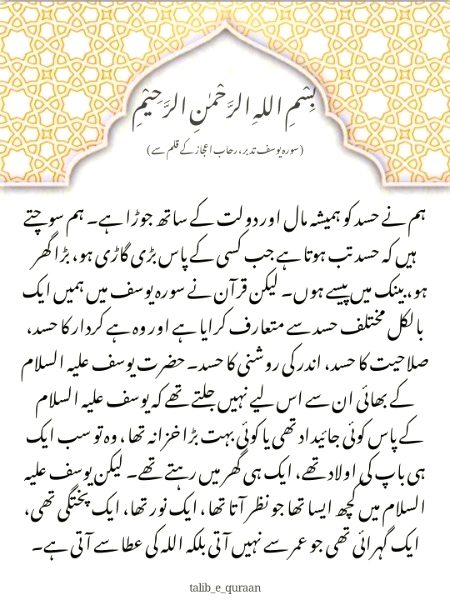 بِسْمِ اللہِ الرَّحْمٰنِ الرَّحِیْمِ
(سورہ یوسف تدبر، رحاب اعجاز کے قلم سے)
ہم نے حسد کو ہمیشہ مال اور دولت کے ساتھ جوڑا ہے۔ ہم سوچتے
ہیں کہ حسد تب ہوتا ہے جب کسی کے پاس بڑی گاڑی ہو، بڑا گھر
ہو، بینک میں پیسے ہوں۔ لیکن قرآن نے سورہ یوسف میں ہمیں ایک
بالکل مختلف حسد سے متعارف کرایا ہے اور وہ ہے کردار کا حسد،
صلاحیت کا حسد، اندر کی روشنی کا حسد۔ حضرت یوسف علیہ السلام
کے بھائی ان سے اس لیے نہیں جلتے تھے کہ یوسف علیہ السلام
کے پاس کوئی جائیداد تھی یا کوئی بہت بڑا خزانہ تھا، وہ تو سب ایک
ہی باپ کی اولاد تھے، ایک ہی گھر میں رہتے تھے۔ لیکن یوسف علیہ
السلام میں کچھ ایسا تھا جو نظر آتا تھا، ایک نور تھا، ایک پختگی تھی،
ایک گہرائی تھی جو عمر سے نہیں آتی بلکہ اللہ کی عطا سے آتی ہے۔
talib_e_quraan